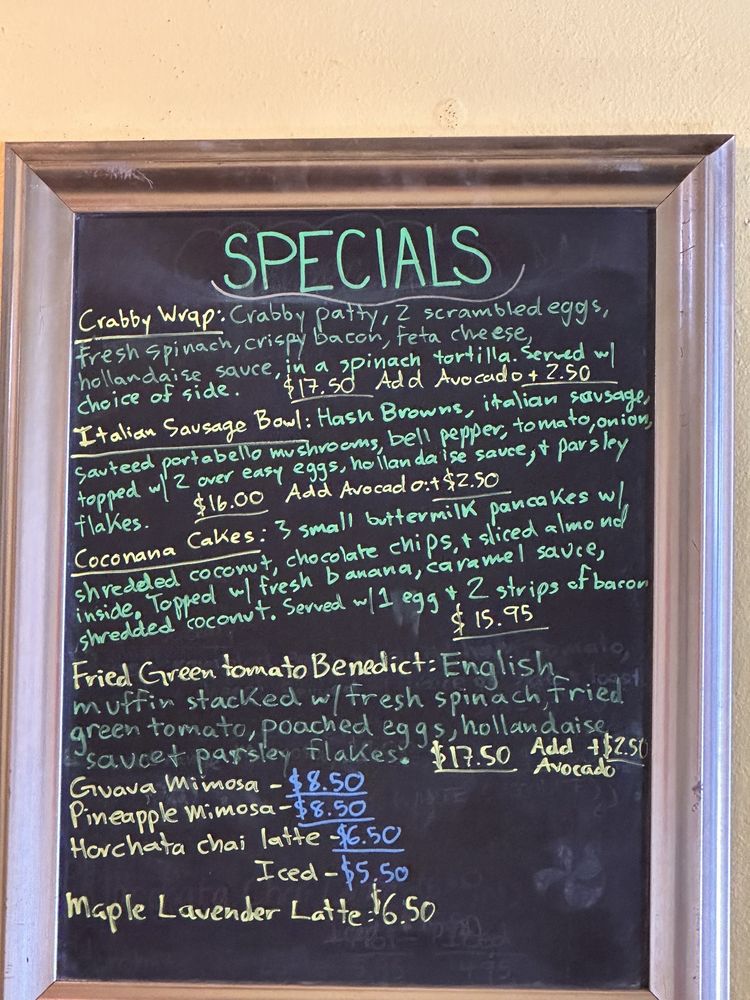 SPECIALS
Crabby Wrap: Crabby patty, 2 scrambled eggs,
fresh spinach, crispy bacon, feta cheese,
hollandaise sauce, in a spinach tortilla. Served w/
choice of side. $17.50 Add Avocado + 2.50
Italian Sausage Bowl: Hash Browns, italian sausage,
sauteed portabello mushrooms, bell pepper, tomato, onion,
topped w/ 2 over easy eggs, hollandaise sauce, + parsley
flakes. $16.00 Add Avocado: + $2.50
Coconana Cakes: 3 small buttermilk pancakes w/
shredded coconut, chocolate chips, + sliced almond
inside. Topped w/ fresh banana, caramel sauce,
shredded coconut. Served w/ 1 egg + 2 strips of bacon
$15.95
Fried Green tomato Benedict: English
muffin stacked w/ fresh spinach, fried
green tomato, poached eggs, hollandaise
sauce + parsley flakes. $17.50 Add +$2.50
Avocado
Guava Mimosa - $8.50
Pineapple Mimosa - $8.50
Horchata chai latte - $6.50
Iced - $5.50
Maple Lavender Latte: $6.50